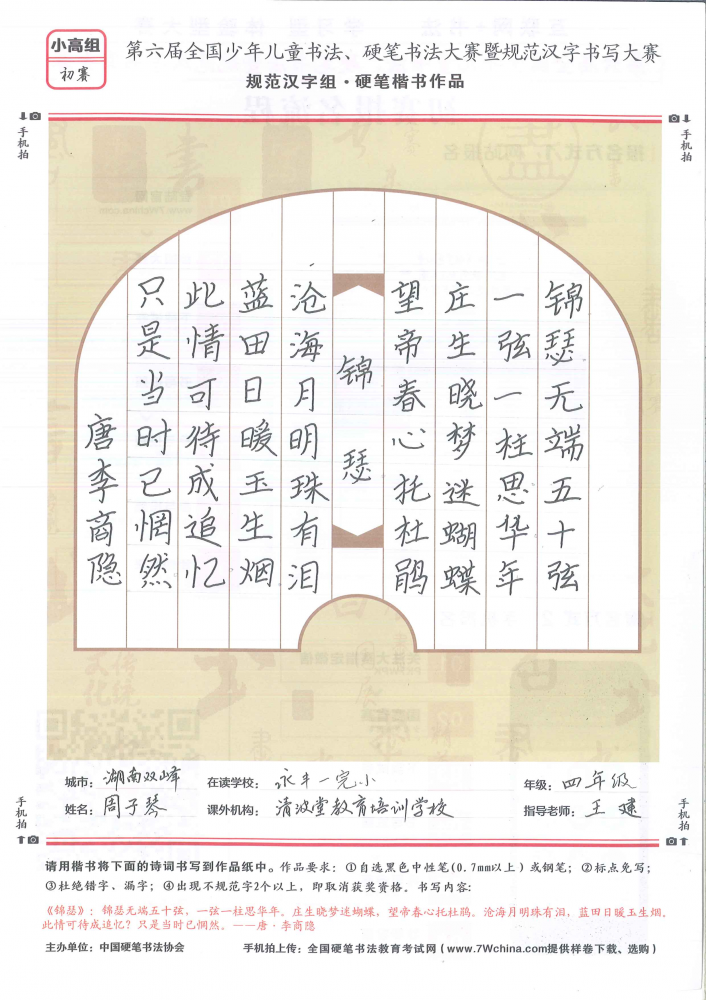 小高组
初赛
第六届全国少年儿童书法、硬笔书法大赛暨规范汉字书写大赛
规范汉字组·硬笔楷书作品
手机拍
手机拍
锦瑟无端五十弦
一弦一柱思华年
庄生晓梦迷蝴蝶
望帝春心托杜鹃
锦瑟
沧海月明珠有泪
蓝田日暖玉生烟
此情可待成追忆
只是当时已惘然
唐李商隐
城市：湖南双峰 在读学校：永丰一完小 年级：四年级
姓名：周子琴 课外机构：清波堂教育培训学校 指导老师：王建
手机拍
手机拍
请用楷书将下面的诗词书写到作品纸中。作品要求：①自选黑色中性笔(0.7mm以上)或钢笔；②标点免写；
③杜绝错字、漏字；④出现不规范字2个以上，即取消获奖资格。书写内容：
《锦瑟》：锦瑟无端五十弦，一弦一柱思华年。庄生晓梦迷蝴蝶，望帝春心托杜鹃。沧海月明珠有泪，蓝田日暖玉生烟。
此情可待成追忆？只是当时已惘然。——唐·李商隐
主办单位：中国硬笔书法协会 手机拍上传：全国硬笔书法教育考试网(www.7Wchina.com提供样卷下载、选购)